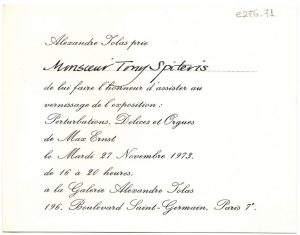 e276_71
Alexandre Iolas prie
Monsieur Tony Spiteris
de lui faire l'honneur d'assister au
vernissage de l'exposition :
Perturbations, Délices et Orgues
de Max Ernst
le Mardi 27 Novembre 1973.
de 16 à 20 heures.
à la Galerie Alexandre Iolas
196. Boulevard Saint-Germain. Paris 7e.